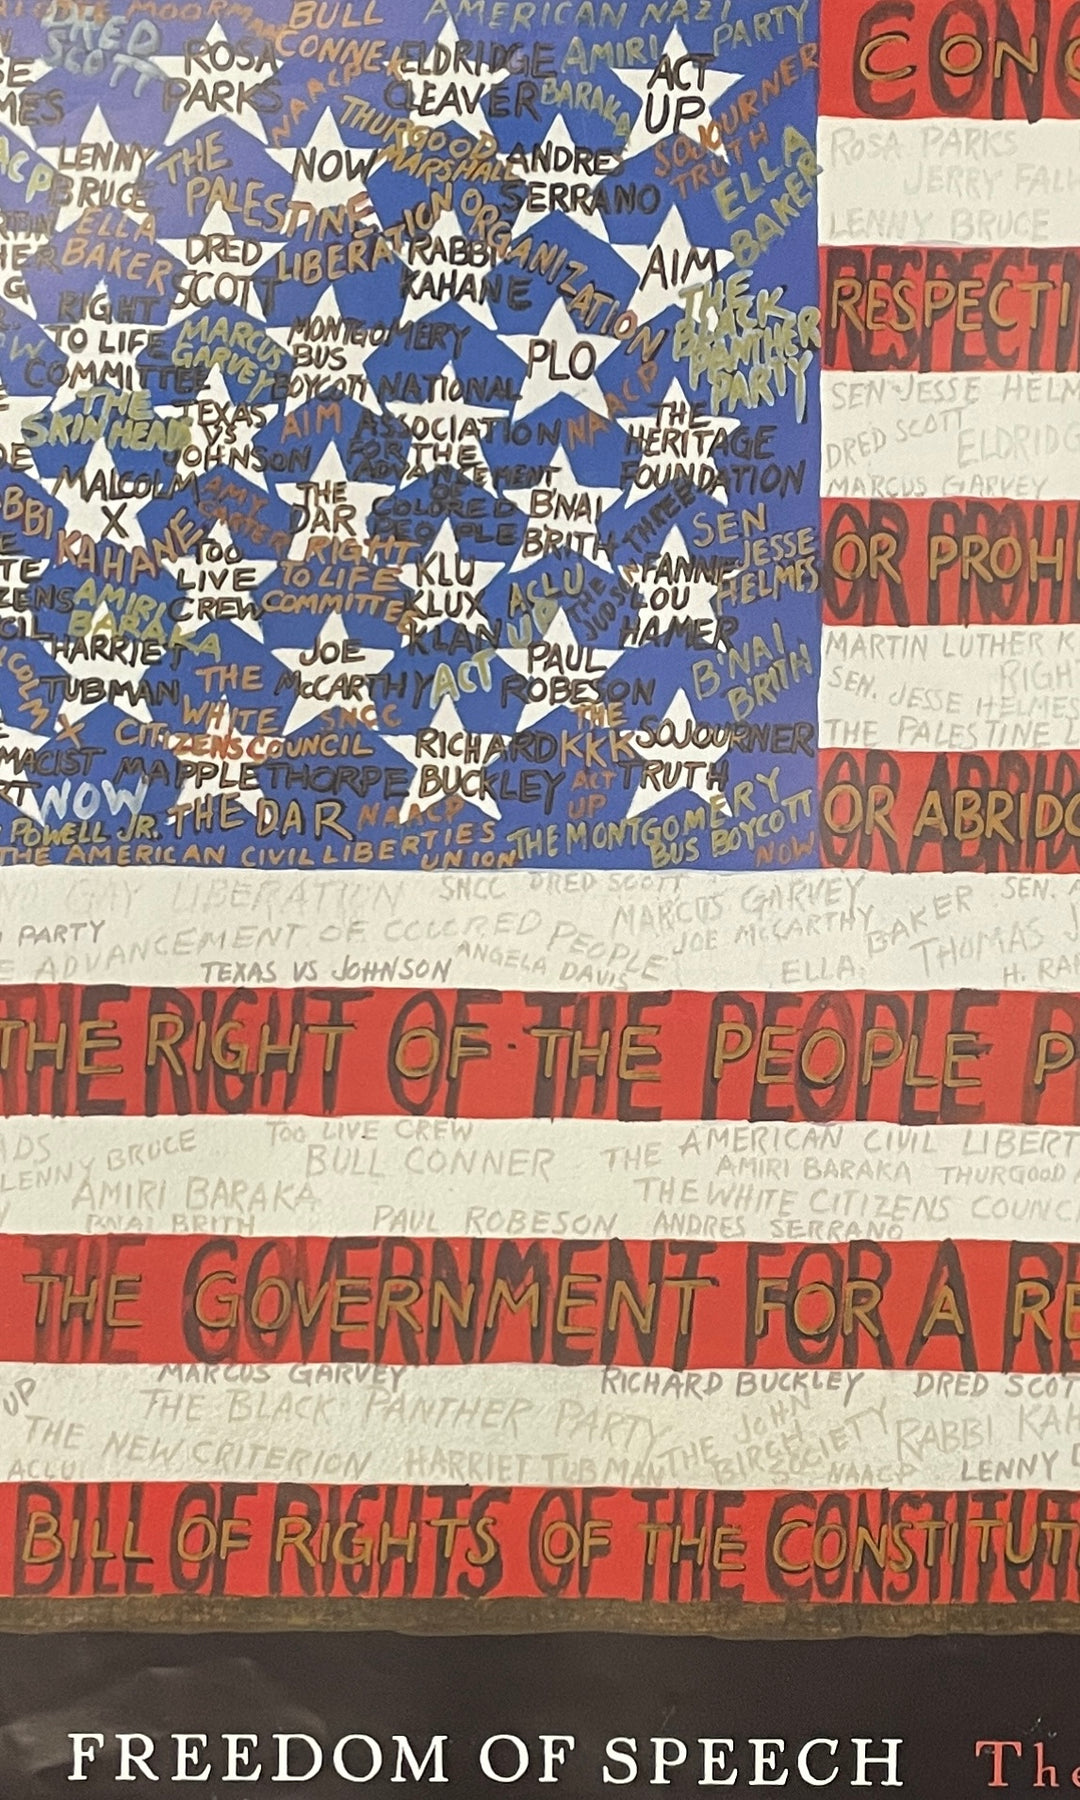 DRED SCOTT
MOORMAN
BULL CONNER
AMERICAN NAZI PARTY
ROSA PARKS
NAACP
ELDRIDGE CLEAVER
AMIRI BARAKA
ACT UP
SOJOURNER TRUTH
LENNY BRUCE
THE PALESTINE LIBERATION ORGANIZATION
NOW
THURGOOD MARSHALL
ANDRES SERRANO
ELLA BAKER
ELLA BAKER
DRED SCOTT
RABBI KAHANE
AIM
THE BLACK PANTHER PARTY
RIGHT TO LIFE COMMITTEE
MARCUS GARVEY
MONTGOMERY BUS BOYCOTT
PLO
NAACP
THE SKIN HEADS
TEXAS VS JOHNSON
AIM
NATIONAL ASSOCIATION FOR THE ADVANCEMENT OF COLORED PEOPLE
THE HERITAGE FOUNDATION
MALCOLM X
AMY CARTER
THE DAR
B'NAI BRITH
THREE
SEN JESSE HELMES
KAHANE
TOO LIVE CREW
RIGHT TO LIFE COMMITTEE
KLU KLUX KLAN
ACLU
FANNIE LOU HAMER
AMIRI BARAKA
HARRIET TUBMAN
THE WHITE CITIZENS COUNCIL
JOE McCARTHY
ACT UP
PAUL ROBESON
B'NAI BRITH
SNCC
THE KKK
MAPPLETHORPE
RICHARD BUCKLEY
ACT UP
SOJOURNER TRUTH
NOW
POWELL JR.
THE DAR
NAACP
THE MONTGOMERY BUS BOYCOTT
NOW
THE AMERICAN CIVIL LIBERTIES UNION
CONG
ROSA PARKS
JERRY FALW
LENNY BRUCE
RESPECTI
SEN JESSE HELM
DRED SCOTT
ELDRIDG
MARCUS GARVEY
OR PROHI
MARTIN LUTHER K
RIGHT
SEN. JESSE HELMES
THE PALESTINE L
OR ABRIDG
GAY LIBERATION
SNCC
DRED SCOTT
MARCUS GARVEY
SEN.
PARTY
ADVANCEMENT OF COLORED PEOPLE
JOE McCARTHY
ELLA BAKER
THOMAS J
TEXAS VS JOHNSON
ANGELA DAVIS
H. RA
THE RIGHT OF THE PEOPLE P
LENNY BRUCE
TOO LIVE CREW
BULL CONNER
THE AMERICAN CIVIL LIBERT
AMIRI BARAKA
THURGOOD
AMIRI BARAKA
THE WHITE CITIZENS COUNC
BNAI BRITH
PAUL ROBESON
ANDRES SERRANO
THE GOVERNMENT FOR A RE
MARCUS GARVEY
RICHARD BUCKLEY
DRED SCOT
UP
THE BLACK PANTHER PARTY
THE JOHN BIRCH SOCIETY
RABBI KAH
THE NEW CRITERION
HARRIET TUBMAN
ACLU
NAACP
LENNY
BILL OF RIGHTS OF THE CONSTITUT
FREEDOM OF SPEECH The